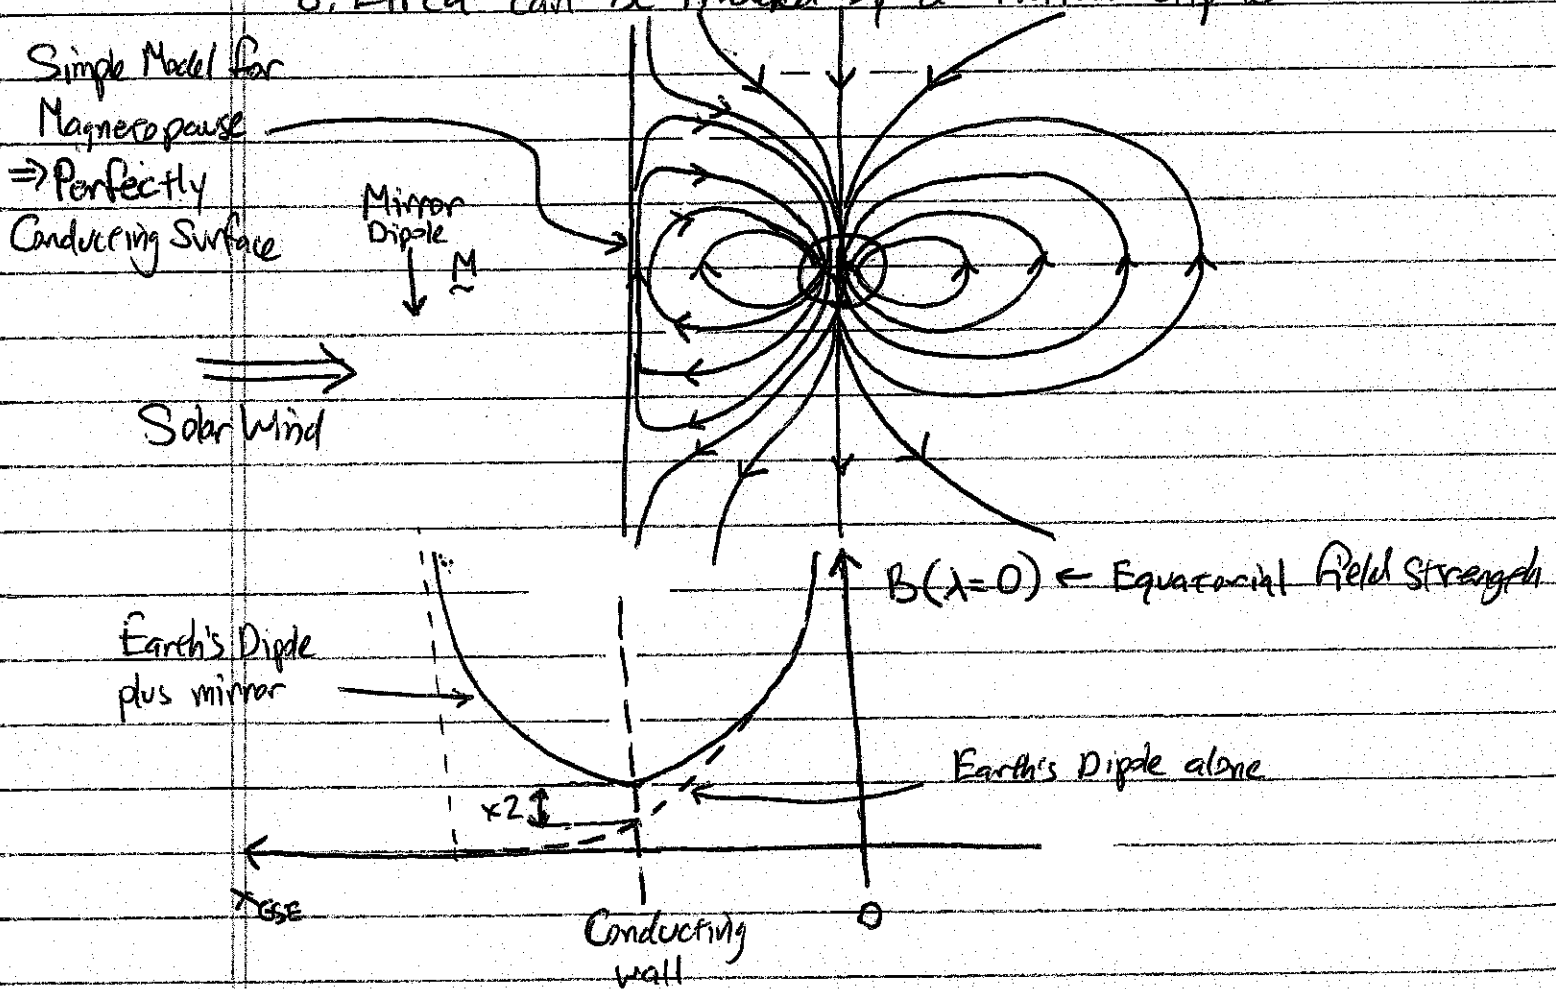 can be by a
Simple Model for
Magnetopause
⇒ Perfectly
Conducting Surface
Mirror
Dipole
M
Solar Wind
B(λ=0) ← Equatorial field strength
Earth's Dipole
plus mirror
Earth's Dipole alone
x2
X GSE
Conducting
wall
O